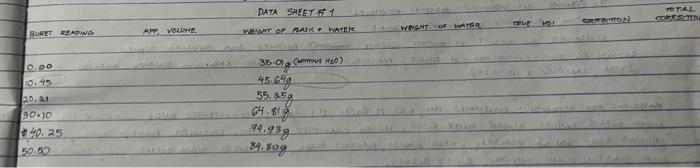 DATA SHEET #1
BURET READING APP. VOLUME WEIGHT OF FLASK + WATER WEIGHT OF WATER TRUE VOL CORRECTION TOTAL CORRECTION
0.00 35.09g (WITHOUT H2O)
10.45 45.64g
20.21 55.25g
30.10 64.81g
40.25 74.93g
50.50 84.80g